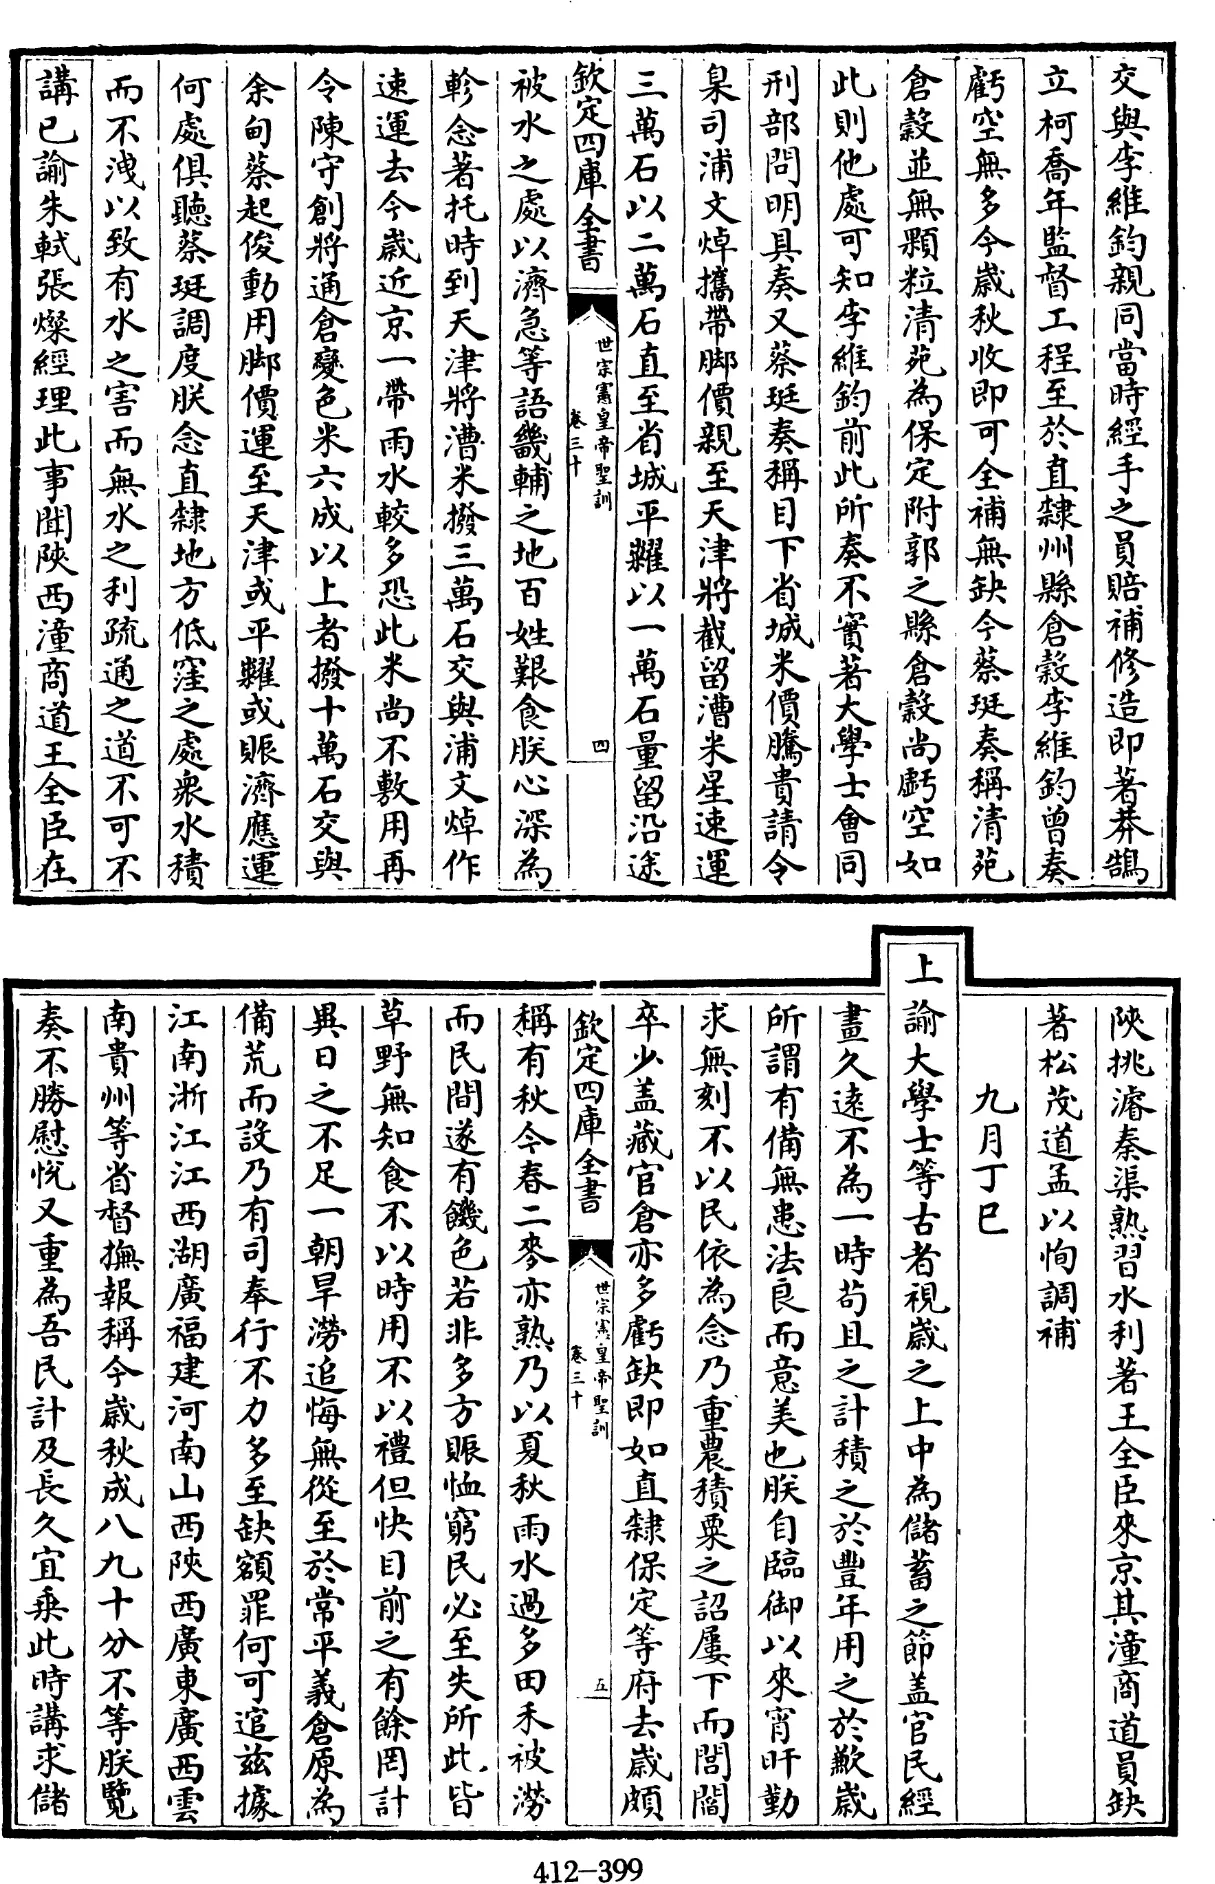 交與李維鈞親同當時經手之員賠補修造即著莽鵠
立柯喬年監督工程至於直隸州縣倉穀李維鈞曾奏
虧空無多今歲秋收即可全補無缺今蔡珽奏稱清苑
倉穀並無顆粒清苑為保定附郭之縣倉穀尚虧空如
此則他處可知李維鈞前此所奏不實著大學士會同
刑部問明具奏又蔡珽奏稱目下省城米價騰貴請令
臬司浦文焯攜帶脚價親至天津將截留漕米星速運
三萬石以二萬石直至省城平糶以一萬石量留沿途
欽定四庫全書
世宗憲皇帝聖訓
卷三十
四
被水之處以濟急等語畿輔之地百姓艱食朕心深為
軫念著托時到天津將漕米撥三萬石交與浦文焯作
速運去今歲近京一帶雨水較多恐此米尚不敷用再
令陳守創將通倉變色米六成以上者撥十萬石交與
余甸蔡起俊動用脚價運至天津或平糶或賑濟應運
何處俱聽蔡珽調度朕念直隸地方低窪之處衆水積
而不洩以致有水之害而無水之利疏通之道不可不
講已諭朱軾張燦經理此事聞陝西潼商道王全臣在
陝挑濬秦渠熟習水利著王全臣來京其潼商道員缺
著松茂道孟以恂調補
九月丁巳
上諭大學士等古者視歲之上中為儲蓄之節蓋官民經
畫久遠不為一時苟且之計積之於豐年用之於歉歲
所謂有備無患法良而意美也朕自臨御以來宵旰勤
求無刻不以民依為念乃重農積粟之詔屢下而閭閻
卒少蓋藏官倉亦多虧缺即如直隸保定等府去歲頗
欽定四庫全書
世宗憲皇帝聖訓
卷三十
五
稱有秋今春二麥亦熟乃以夏秋雨水過多田禾被澇
而民間遂有饑色若非多方賑恤窮民必至失所此皆
草野無知食不以時用不以禮但快目前之有餘罔計
異日之不足一朝旱澇追悔無從至於常平義倉原為
備荒而設乃有司奉行不力多至缺額罪何可逭茲據
江南浙江江西湖廣福建河南山西陝西廣東廣西雲
南貴州等省督撫報稱今歲秋成八九十分不等朕覽
奏不勝慰悅又重為吾民計及長久宜乘此時講求儲
412-399